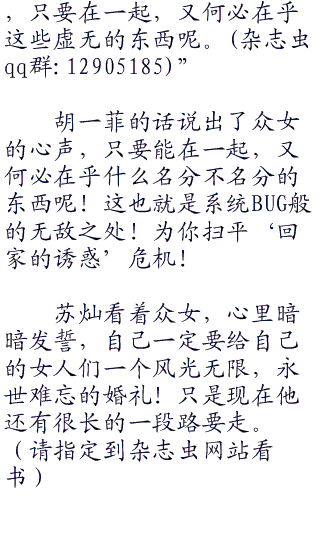 ，只要在一起，又何必在乎
这些虚无的东西呢。(杂志虫
qq群: 12905185)”
胡一菲的话说出了众女
的心声，只要能在一起，又
何必在乎什么名分不名分的
东西呢！这也就是系统BUG般
的无敌之处！为你扫平‘回
家的诱惑’危机！
苏灿看着众女，心里暗
暗发誓，自己一定要给自己
的女人们一个风光无限，永
世难忘的婚礼！只是现在他
还有很长的一段路要走。
（请指定到杂志虫网站看
书）